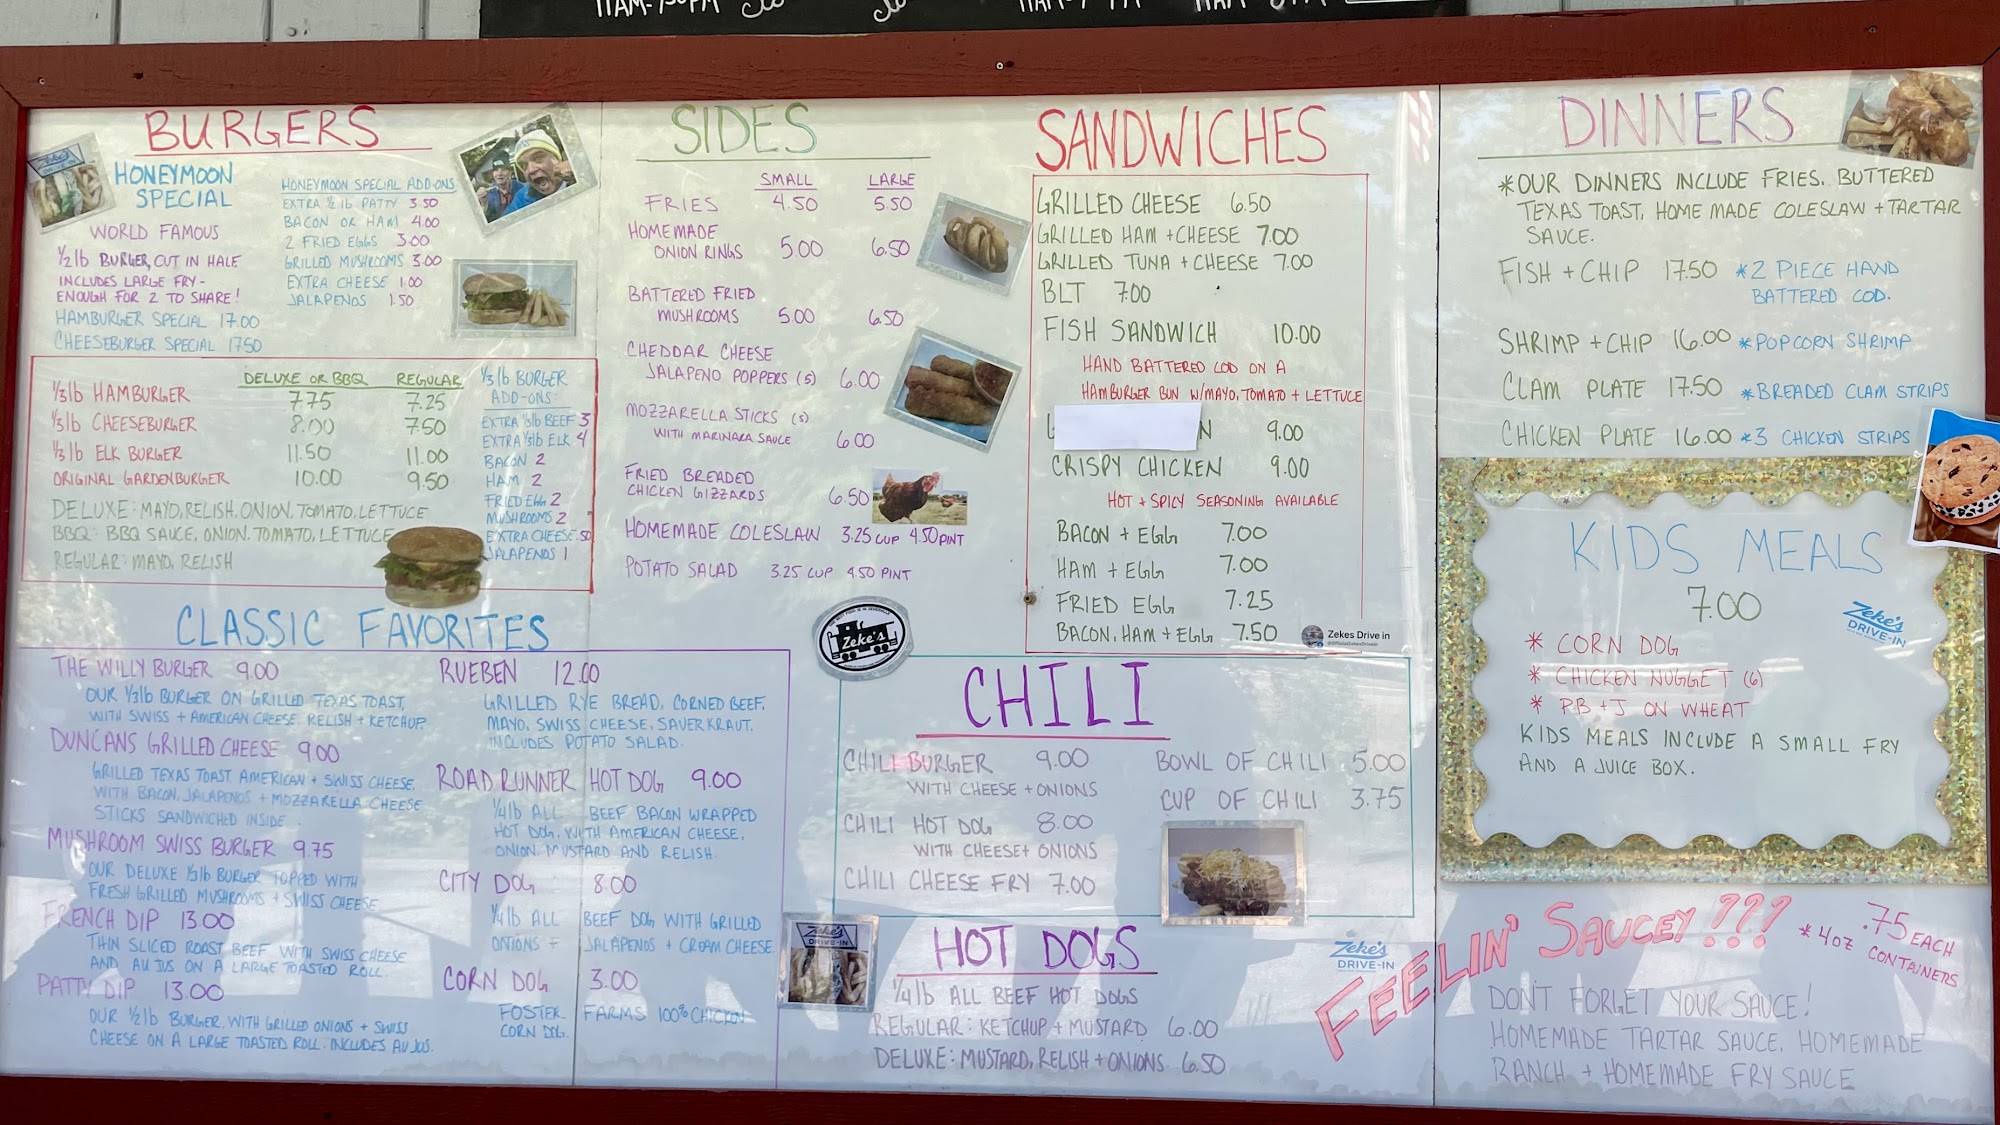 11AM-7:30PM
BURGERS
HONEYMOON
SPECIAL
WORLD FAMOUS
1/2 lb BURGER, CUT IN HALF
INCLUDES LARGE FRY -
ENOUGH FOR 2 TO SHARE!
HAMBURGER SPECIAL 17.00
CHEESEBURGER SPECIAL 17.50
HONEYMOON SPECIAL ADD-ONS
EXTRA 1/2 lb PATTY 3.50
BACON OR HAM 4.00
2 FRIED EGGS 3.00
GRILLED MUSHROOMS 3.00
EXTRA CHEESE 1.00
JALAPENOS 1.50
DELUXE OR BBQ REGULAR
1/3 lb HAMBURGER 7.75 7.25
1/3 lb CHEESEBURGER 8.00 7.50
1/3 lb ELK BURGER 11.50 11.00
ORIGINAL GARDENBURGER 10.00 9.50
DELUXE: MAYO, RELISH, ONION, TOMATO, LETTUCE
BBQ: BBQ SAUCE, ONION, TOMATO, LETTUCE
REGULAR: MAYO, RELISH
1/3 lb BURGER
ADD-ONS:
EXTRA 1/3 lb BEEF 3
EXTRA 1/3 lb ELK 4
BACON 2
HAM 2
FRIED EGG 2
MUSHROOMS 2
EXTRA CHEESE .50
JALAPENOS 1
CLASSIC FAVORITES
THE WILLY BURGER 9.00
OUR 1/3 lb BURGER ON GRILLED TEXAS TOAST,
WITH SWISS + AMERICAN CHEESE, RELISH + KETCHUP.
DUNCANS GRILLED CHEESE 9.00
GRILLED TEXAS TOAST, AMERICAN + SWISS CHEESE,
WITH BACON, JALAPENOS + MOZZARELLA CHEESE
STICKS SANDWICHED INSIDE.
MUSHROOM SWISS BURGER 9.75
OUR DELUXE 1/3 lb BURGER TOPPED WITH
FRESH GRILLED MUSHROOMS + SWISS CHEESE
FRENCH DIP 13.00
THIN SLICED ROAST BEEF WITH SWISS CHEESE
AND AU JUS ON A LARGE TOASTED ROLL.
PATTY DIP 13.00
OUR 1/2 lb BURGER, WITH GRILLED ONIONS + SWISS
CHEESE ON A LARGE TOASTED ROLL. INCLUDES AU JUS.
RUEBEN 12.00
GRILLED RYE BREAD, CORNED BEEF,
MAYO, SWISS CHEESE, SAUERKRAUT.
INCLUDES POTATO SALAD.
ROAD RUNNER HOT DOG 9.00
1/4 lb ALL BEEF BACON WRAPPED
HOT DOG, WITH AMERICAN CHEESE,
ONION, MUSTARD AND RELISH.
CITY DOG 8.00
1/4 lb ALL BEEF DOG WITH GRILLED
ONIONS + JALAPENOS + CREAM CHEESE.
CORN DOG 3.00
FOSTER FARMS 100% CHICKEN
CORN DOG.
SIDES
SMALL LARGE
FRIES 4.50 5.50
HOMEMADE
ONION RINGS 5.00 6.50
BATTERED FRIED
MUSHROOMS 5.00 6.50
CHEDDAR CHEESE
JALAPENO POPPERS (5) 6.00
MOZZARELLA STICKS (5)
WITH MARINARA SAUCE 6.00
FRIED BREADED
CHICKEN GIZZARDS 6.50
HOMEMADE COLESLAW 3.25 CUP 4.50 PINT
POTATO SALAD 3.25 CUP 4.50 PINT
Zeke's
SANDWICHES
GRILLED CHEESE 6.50
GRILLED HAM + CHEESE 7.00
GRILLED TUNA + CHEESE 7.00
BLT 7.00
FISH SANDWICH 10.00
HAND BATTERED COD ON A
HAMBURGER BUN W/MAYO, TOMATO + LETTUCE
N 9.00
CRISPY CHICKEN 9.00
HOT + SPICY SEASONING AVAILABLE
BACON + EGG 7.00
HAM + EGG 7.00
FRIED EGG 7.25
BACON, HAM + EGG 7.50
Zekes Drive in
CHILI
CHILI BURGER 9.00
WITH CHEESE + ONIONS
CHILI HOT DOG 8.00
WITH CHEESE + ONIONS
CHILI CHEESE FRY 7.00
BOWL OF CHILI 5.00
CUP OF CHILI 3.75
Zeke's
DRIVE-IN
HOT DOGS
1/4 lb ALL BEEF HOT DOGS
REGULAR: KETCHUP + MUSTARD 6.00
DELUXE: MUSTARD, RELISH + ONIONS 6.50
Zeke's
DRIVE-IN
DINNERS
*OUR DINNERS INCLUDE FRIES, BUTTERED
TEXAS TOAST, HOME MADE COLESLAW + TARTAR
SAUCE.
FISH + CHIP 17.50 *2 PIECE HAND
BATTERED COD.
SHRIMP + CHIP 16.00 *POPCORN SHRIMP
CLAM PLATE 17.50 *BREADED CLAM STRIPS
CHICKEN PLATE 16.00 *3 CHICKEN STRIPS
KIDS MEALS
7.00
Zeke's
DRIVE-IN
* CORN DOG
* CHICKEN NUGGET (6)
* PB + J ON WHEAT
KIDS MEALS INCLUDE A SMALL FRY
AND A JUICE BOX.
FEELIN' SAUCEY???
.75 EACH
*4oz CONTAINERS
DON'T FORGET YOUR SAUCE!
HOMEMADE TARTAR SAUCE, HOMEMADE
RANCH + HOMEMADE FRY SAUCE